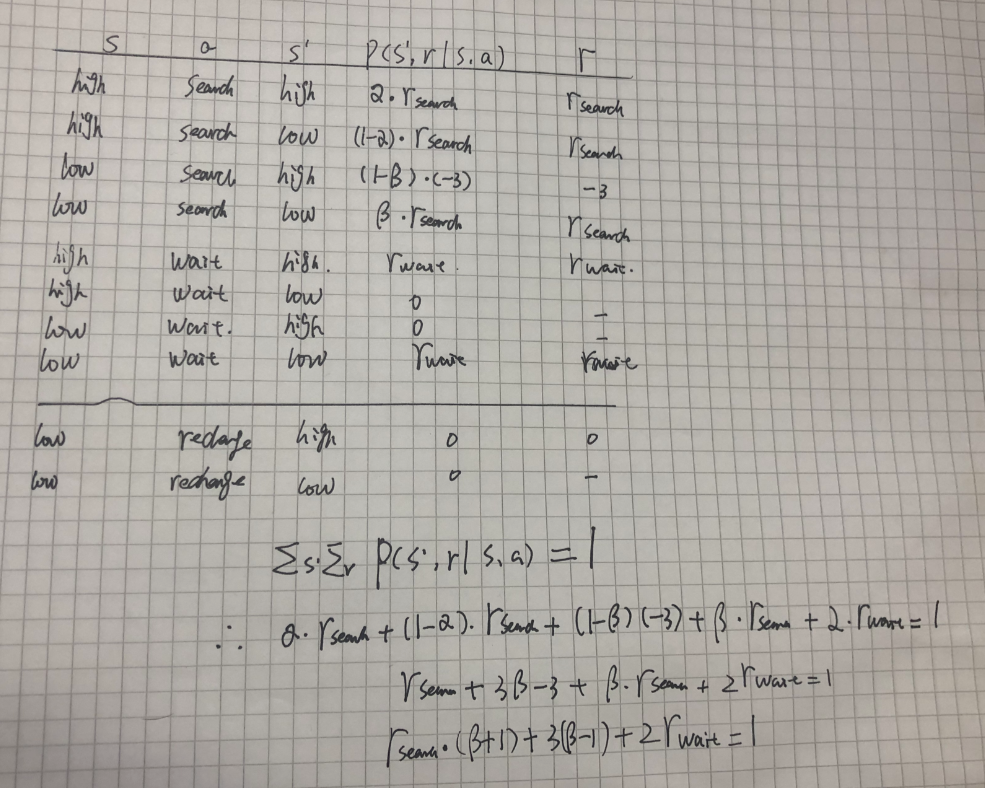 s a s' p(s', r | s, a) r
high search high α · r_search r_search
high search low (1-α) · r_search r_search
low search high (1-β) · (-3) -3
low search low β · r_search r_search
high wait high. r_wait. r_wait.
high wait low 0 -
low wait. high 0 -
low wait low r_wait r_wait
low recharge high 0 0
low recharge low 0 -
Σs' Σr p(s', r | s, a) = 1
∴ α · r_search + (1-α) · r_search + (1-β)(-3) + β · r_search + 2 · r_wait = 1
r_search + 3β - 3 + β · r_search + 2 r_wait = 1
r_search · (β+1) + 3(β-1) + 2 r_wait = 1